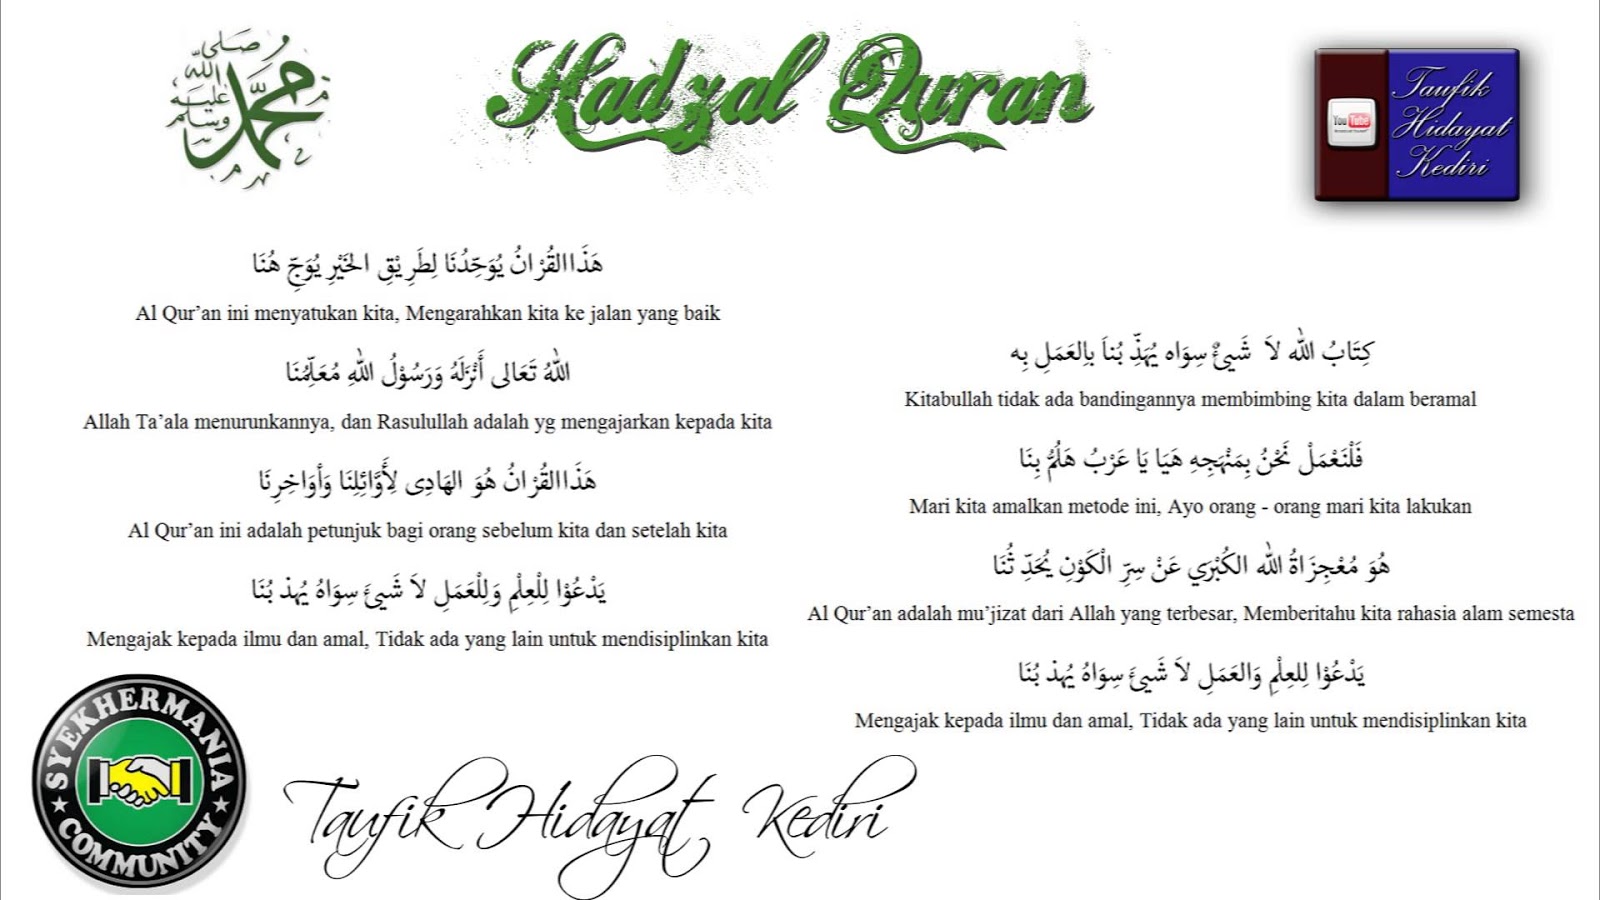 محمد
صلى
الله
عليه
وسلم
Hadzal Quran
You Tube
Taufik
Hidayat
Kediri
هَذَاالقُرْانُ يُوَحِّدُنَا لِطَرِيْقِ الخَيْرِ يُوَجِّ هُنَا
Al Qur’an ini menyatukan kita, Mengarahkan kita ke jalan yang baik
اللهُ تَعَالى أَنْزَلَهُ وَرَسُوْلُ اللهِ مُعَلِّمُنَا
Allah Ta’ala menurunkannya, dan Rasulullah adalah yg mengajarkan kepada kita
هَذَاالقُرْانُ هُوَ الهَادِى لِأَوَّائِلِنَا وَأَوَاخِرِنَا
Al Qur’an ini adalah petunjuk bagi orang sebelum kita dan setelah kita
يَدْعُوْا لِلْعِلْمِ وَلِلْعَمَلِ لاَ شَيئَ سِوَاهُ يُهذْ بُنَا
Mengajak kepada ilmu dan amal, Tidak ada yang lain untuk mendisiplinkan kita
كِتَابُ الله لاَ شَيئٌ سِوَاه يُهَذِّ بُناَ بِالعَمَلِ بِه
Kitabullah tidak ada bandingannya membimbing kita dalam beramal
فَلْنَعْمَلْ نَحْنُ بِمَنْهَجِهِ هَيَا يَا عَرْبُ هَلُمُّ بِنَا
Mari kita amalkan metode ini, Ayo orang - orang mari kita lakukan
هُوَ مُعْجِزَاةُ الله الكُبْرَي عَنْ سِرِّ الْكَوْنِ يُحَدِّ ثُنَا
Al Qur’an adalah mu’jizat dari Allah yang terbesar, Memberitahu kita rahasia alam semesta
يَدْعُوْا لِلعِلْمِ وَالعَمَلِ لاَ شَيئَ سِوَاهُ يُهذْ بُنَا
Mengajak kepada ilmu dan amal, Tidak ada yang lain untuk mendisiplinkan kita
SYEKHERMANIA
COMMUNITY
Taufik Hidayat Kediri